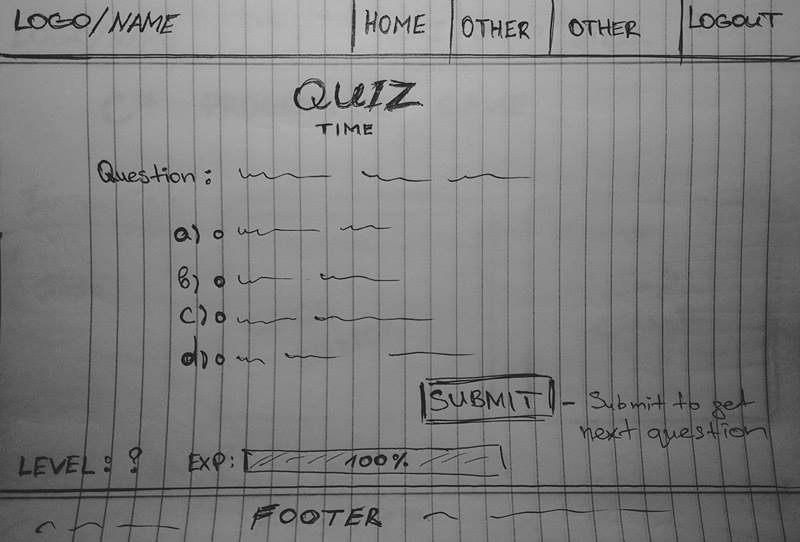 LOGO/NAME HOME OTHER OTHER LOGOUT
QUIZ
TIME
Question:
a)
b)
c)
d)
SUBMIT - Submit to get
next question
LEVEL: ? EXP: 100%
FOOTER